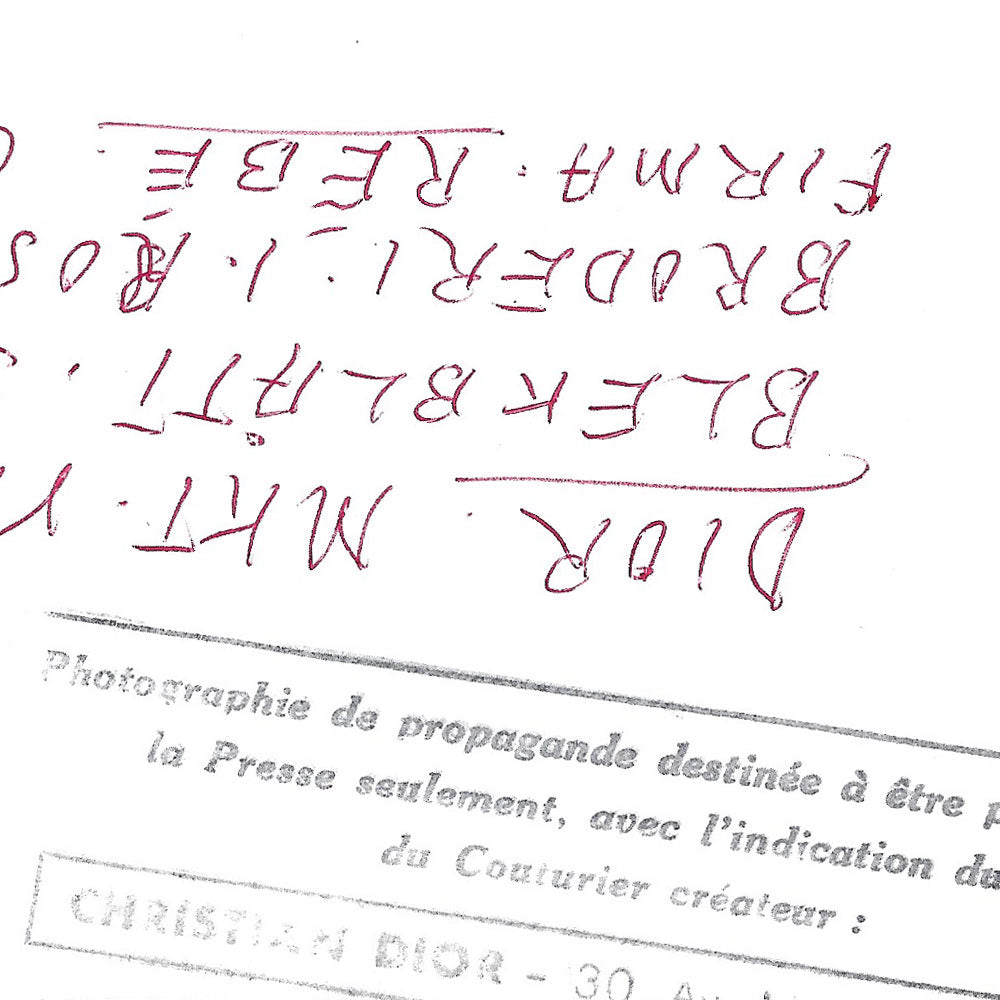 DIOR. MKT.
BLEKBLÅTT.
BRODERI. I. ROS
FIRMA: RÉBÉ.
Photographie de propagande destinée à être
la Presse seulement, avec l'indication du
du Couturier créateur :
CHRISTIAN DIOR - 30